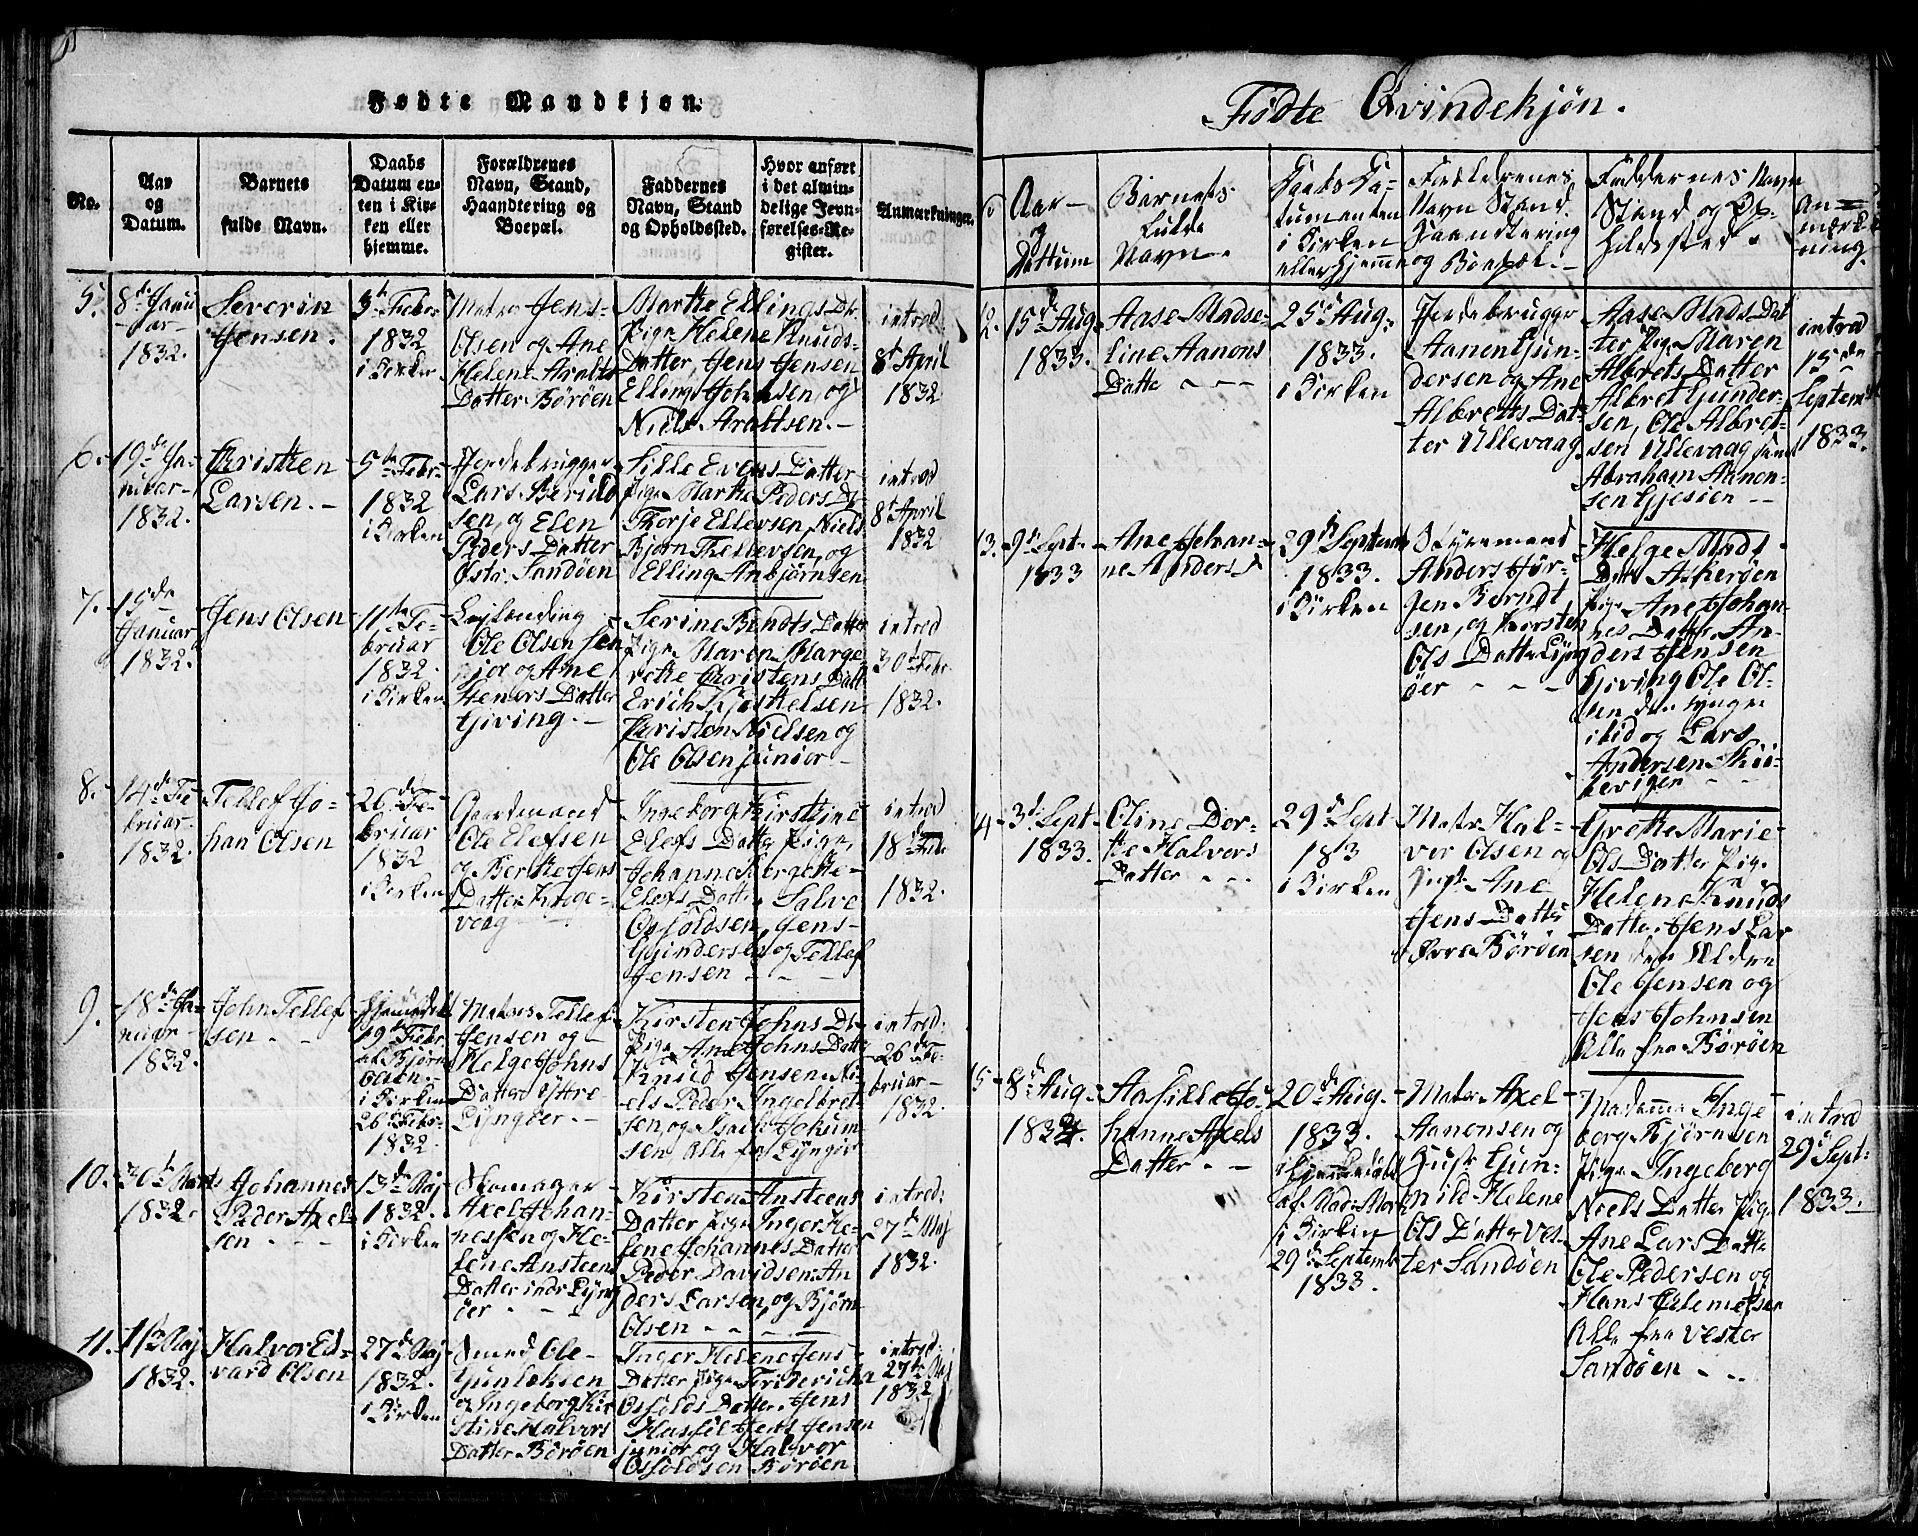 Fødte Mandkjøn.
No.
Aar
og
Datum.
Barnets
fulde Navn.
Daabs
Datum en-
ten i Kir-
ken eller
hjemme.
Forældrenes
Navn, Stand,
Haandtering og
Boepæl.
Faddernes
Navn, Stand
og Opholdssted.
Hvor anført
i det almin-
delige Jevn-
førelses-Re-
gister.
Anmærkninger.
5.
8de Janu
-ar-
1832.
Severin
Jensen.
5te Febr
1832
i Kirken
Matros Jens
Olsen og Ane
Helene Aralts
Datter Børøen
Marthe Ellings Dtr
Pige Helene Knuds-
Datter, Jens Jensen
Elling Johnsen, og
Niels Araltsen.
introd
8de April
1832
6.
19de Ja-
nuar-
1832.
Christen
Larsen.
5te Febr-
1832
i Kirken
Jordebrugger
Lars Beruld
sen, og Elen
Peders Datter
Østr. Sandøen
Sille Evens Datter
Pige Marthe Peders Dr
Thorje Ellevsen, Niels
Bjørn Thellevsen, og
Elling Anbjørnsen
introd
8de April
1832
7.
15de
Januar
1832.
Jens Olsen
11te Fe-
bruar
1832.
i Kirken
Lojlænding
Ole Olsen Jun
jor og Ane
Heners Datter
Giving.
Serine Bendts Datter
Pige Maren Marge
rethe Christens Datt
Erich Kjøstelsen
Christen Nielsen og
Ole Olsen junior
introd
30de Febr
1832.
8.
14de Fe
bruar-
1832.
Tellef Jo-
han Olsen
26de Fe-
bruar
1832
i Kirken
Gaardmand
Ole Elefsen
og Berthe Jens
Datter Krøge-
vaag
Ingeborg Kirstine
Elefs Datter Pige,
Johanne Bergithe
Elefs Datter, Salve
Osfoldsen, Jens
Gundersen og Tellef
Jensen
introd
18de Feb.
1832.
9.
18de Ja-
nuar-
1832.
John Tellef
sen
Hjemedøbt
19de Febr
af Bjørn
Olsen
i Kirken
26de Febr-
1832.
Matros Tellef
Jensen og
Helge Johns
Datter Yttre
Lyngøer
Kirsten Johns Dr
Pige Ane Johns Datter
Knud Jensen, Ni-
els Peder Ingelbret-
sen, og Isach Jokum-
sen Alle fra Lyngør
introd:
26de Fe-
bruar-
1832.
10.
30te Marts
1832.
Johannes
Peder Axel
sen
13de Maj
1832.
i Kirken
Skomager
Axel Johan-
nessen og He-
lene Ansteens
Datter indr Lyng
øer
Kirsten Ansteens
Datter Pige Inger He-
lene Johannes Datter
Peder Davidsen, An
ders Larsen, og Bjørn
Olsen
introd:
27de Maj
1832.
11.
11te Maj
1832.
Halvor Ed-
vard Olsen
27de Maj
1832.
i Kirken
Smed Ole
Gunleksen
og Ingeborg Kir
stine Halvors
Datter Børøen
Inger Helene Jens
Datter pige Friderica
Osfolds Datter, Jens
Hassel Jens Jensen
junior og Halvor
Osfoldsen Børøen
introd:
27de Maj
1832
Fødte Qvindekjøn.
Aar
og
Dattum
Barnets
fulde
Navn.
Daabs Da-
tum enten
i Kirken
eller hjemme
Forældrenes
Navn Stand.
Haandtering
og Boepæl.
Faddernes Navn
Stand og Op-
holdsted.
An=
mærk
ning.
12.
15de Aug
1833.
Aase Madse-
line Aanons
Datter
25de Aug.
1833.
i Kirken
Jordebrugger
Aanon Gun-
dersen og Ane
Albretts Dat-
ter Ullevaag
Aase Mads Dat
ter Pige Maren
Albrets Datter
Albret Gunder-
sen, Ole Albret-
sen Ullevaag samt
Abraham Aanon-
sen Gjesøen
introd
15de
Septemb
1833.
13.
9de Sept.
1833
Ane Johan-
ne Anders Dr
29de Septemb
1833.
i Kirken
Styrmand
Anders Jør-
gen Berndt
sen, og Thorsten
Ols Datter Lyng
øer
Helge Mads
Datter Askerøen
Pige Ane Johan-
nes Datter An-
ders Jensen
Giving Ole Ol-
sen den yngre
ibid og Lars
Andersen Skie-
heviger
14
3de Sept
1833.
Oline Dor-
the Halvors
Datter
29de Sept
1833
i Kirken
Matr. Hal-
vor Olsen og
Just. Ane
Jens Datter
Øvre Børøen
Grethe Marie
Ols Datter Pige
Helene Knuds
Datter, Jens Lar
sen den Ældre
Ole Jensen og
Jens Johnsen
Alle fra Børøen
15
8de Aug.
1833.
Aasille Jo-
hanne Axels
Datter
20de Aug.
1833.
i Hjemmedøbt
af Mad: Mork
i Kirken
29de Septemb
1833.
Matr Axel
Aanonsen og
Hust Gun-
nild Helene
Ols Datter Ves-
ter Sandøen
Madamme Inge
borg Bjørnsen
Pige Ingeberg
Niels Datter Pige
Ane Lars Datter
Ole Pedersen og
Hans Clemetsen
Alle fra Vester
Sandøen
introd
29de Sept.
1833.